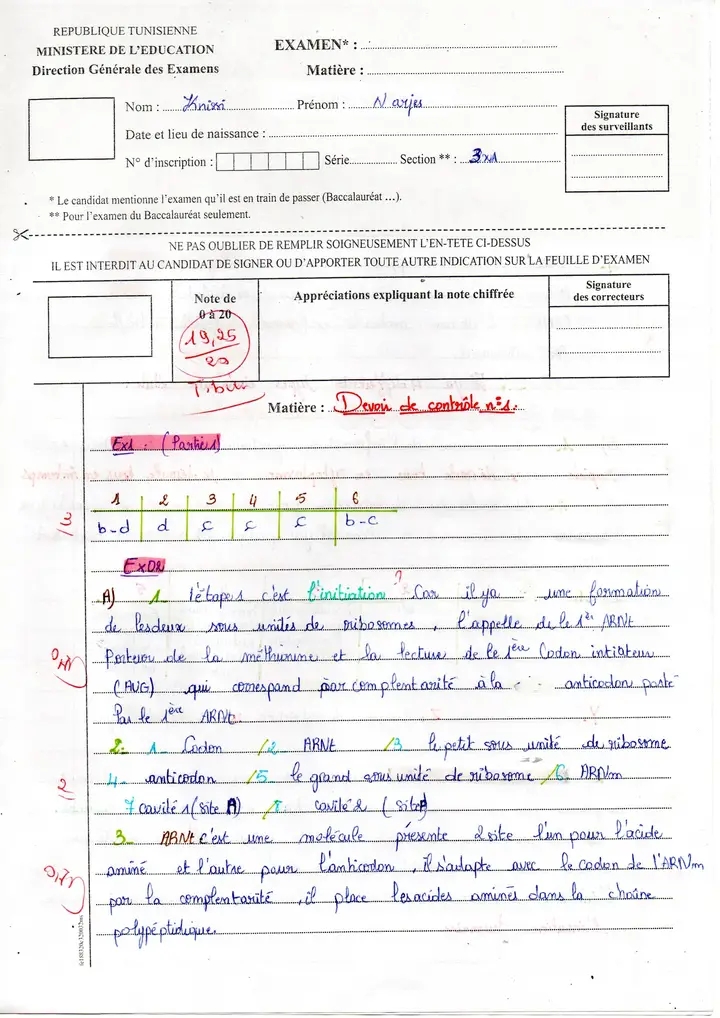 REPUBLIQUE TUNISIENNE
MINISTERE DE L'EDUCATION
Direction Générale des Examens
EXAMEN* :
Matière :
Nom : Knissi Prénom : Narjes
Date et lieu de naissance :
N° d'inscription : Série Section ** :
Signature
des surveillants
* Le candidat mentionne l'examen qu'il est en train de passer (Baccalauréat ...).
** Pour l'examen du Baccalauréat seulement.
NE PAS OUBLIER DE REMPLIR SOIGNEUSEMENT L'EN-TETE CI-DESSUS
IL EST INTERDIT AU CANDIDAT DE SIGNER OU D'APPORTER TOUTE AUTRE INDICATION SUR LA FEUILLE D'EXAMEN
Note de
0 à 20
19,25
20
Appréciations expliquant la note chiffrée
Signature
des correcteurs
T. bien
Matière : Devoir de contrôle n°1.
Ex1 : (Partie1)
1 2 3 4 5 6
b-d d c c c b-c
3
Ex02
A) 1 l'étape1 c'est l'initiation ? Car il ya une formation
de lesdeux sous unités de ribosomes, l'appelle de le 1èr ARNt
Porteur de la méthionine et la lecture de le 1ère Codon intiateur
(AUG) qui correspond par complentarité à la anticodon porté
Par le 1ère ARNt
2- 1 Codon /2 ARNt /3 le petit sous unité de ribosome
4- anticodon /5 le grand sous unité de ribosome /6 ARNm
7 cavité 1 (site A) /8 cavité 2 (site P)
2
3 ARNt c'est une molécule présente 2 site l'un pour l'acide
aminé et l'autre pour l'anticodon, il s'adapte avec le codon de l'ARNm
0,75
par la complentarité, il place lesacides aminés dans la chaîne
polypéptidique.